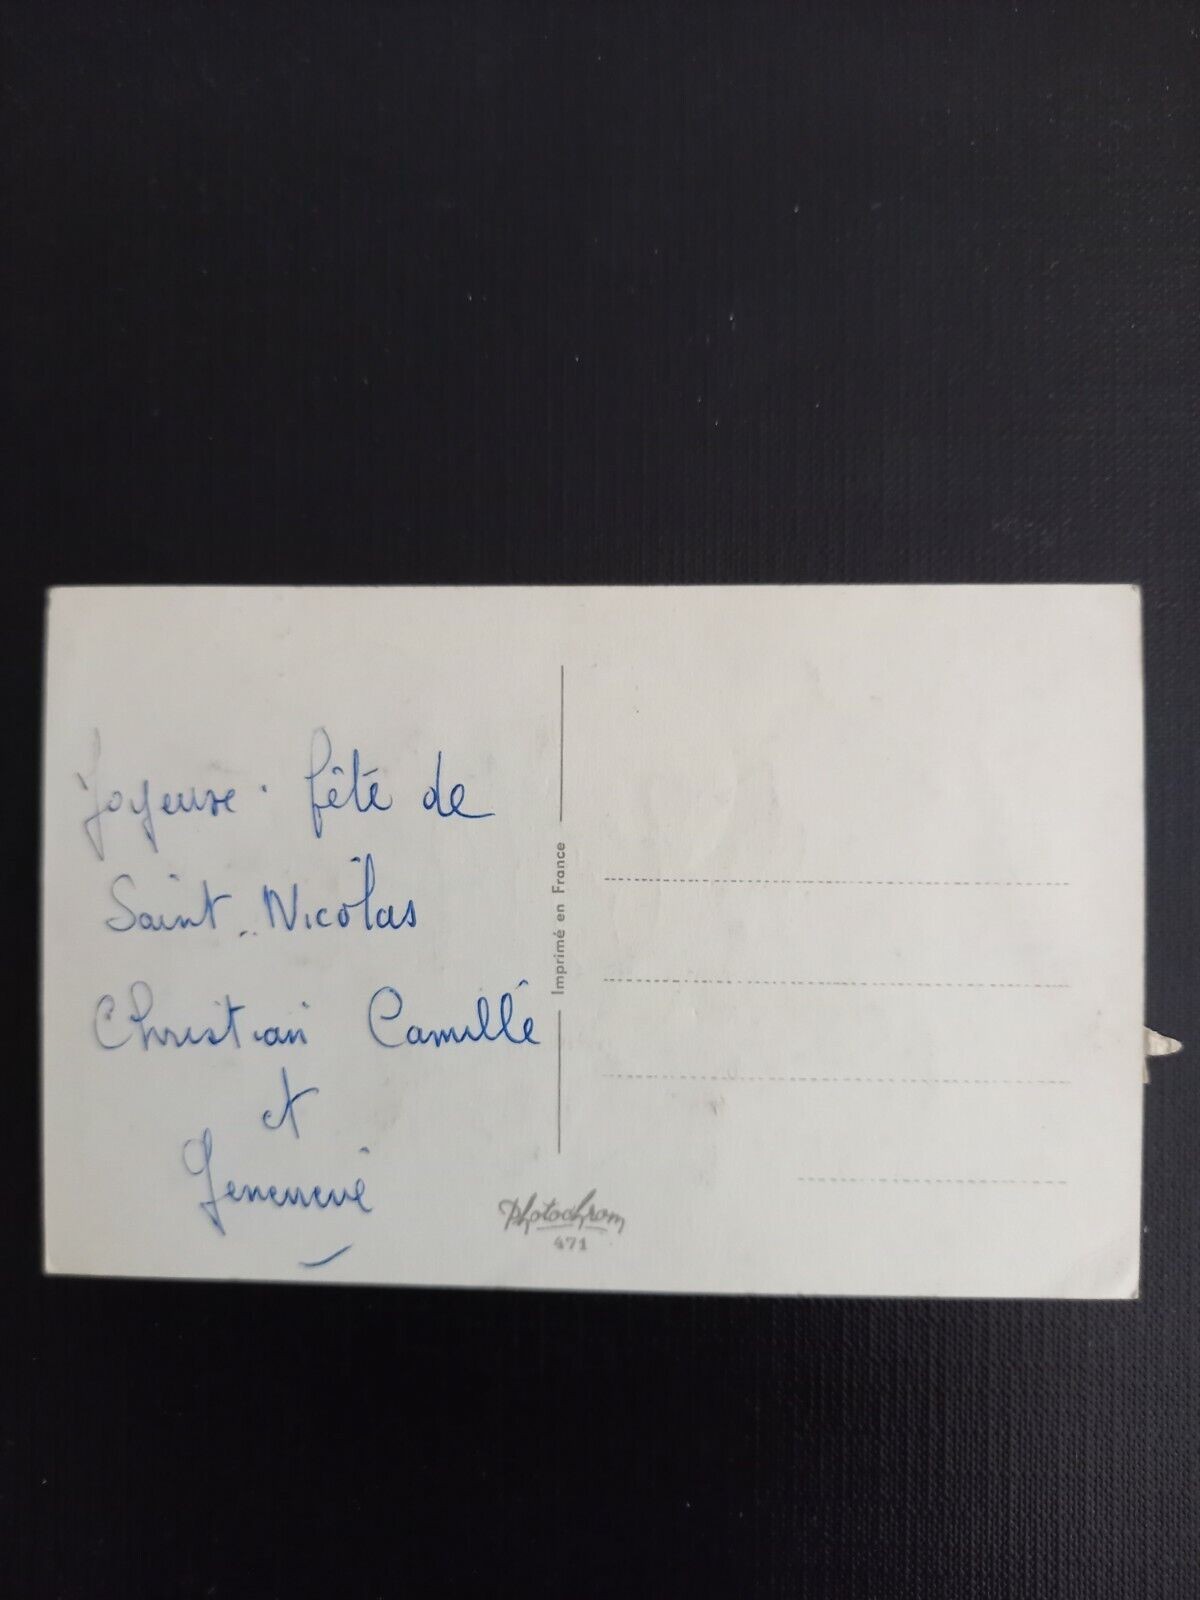 Joyeuse fêté de
Saint. Nicolas
Christian Camillé
et
Genevievé
Imprimé en France
Photochrom
471